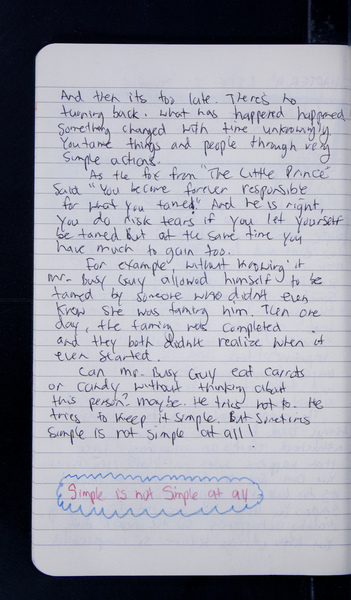 And then its too late. There's no
turning back. what has happened happened
Something changed with time unknowingly
You tame things and people through very
simple actions.
As the fox from "The Little Prince"
said "You become forever responsible
for what you tamed" And he is right,
you do risk tears if you let yourself
be tamed But at the same time you
have much to gain too.
For example, without knowing it
mr. Busy Guy allowed himself to be
tamed by someone who didn't even
know she was taming him. Then one
day, the taming was completed
and they both didn't realize when it
even started.
Can mr. Busy Guy eat carrots
or candy without thinking about
this person? maybe. He tries not to. He
tries to keep it simple. But sometimes
simple is not simple at all!
Simple is not simple at all